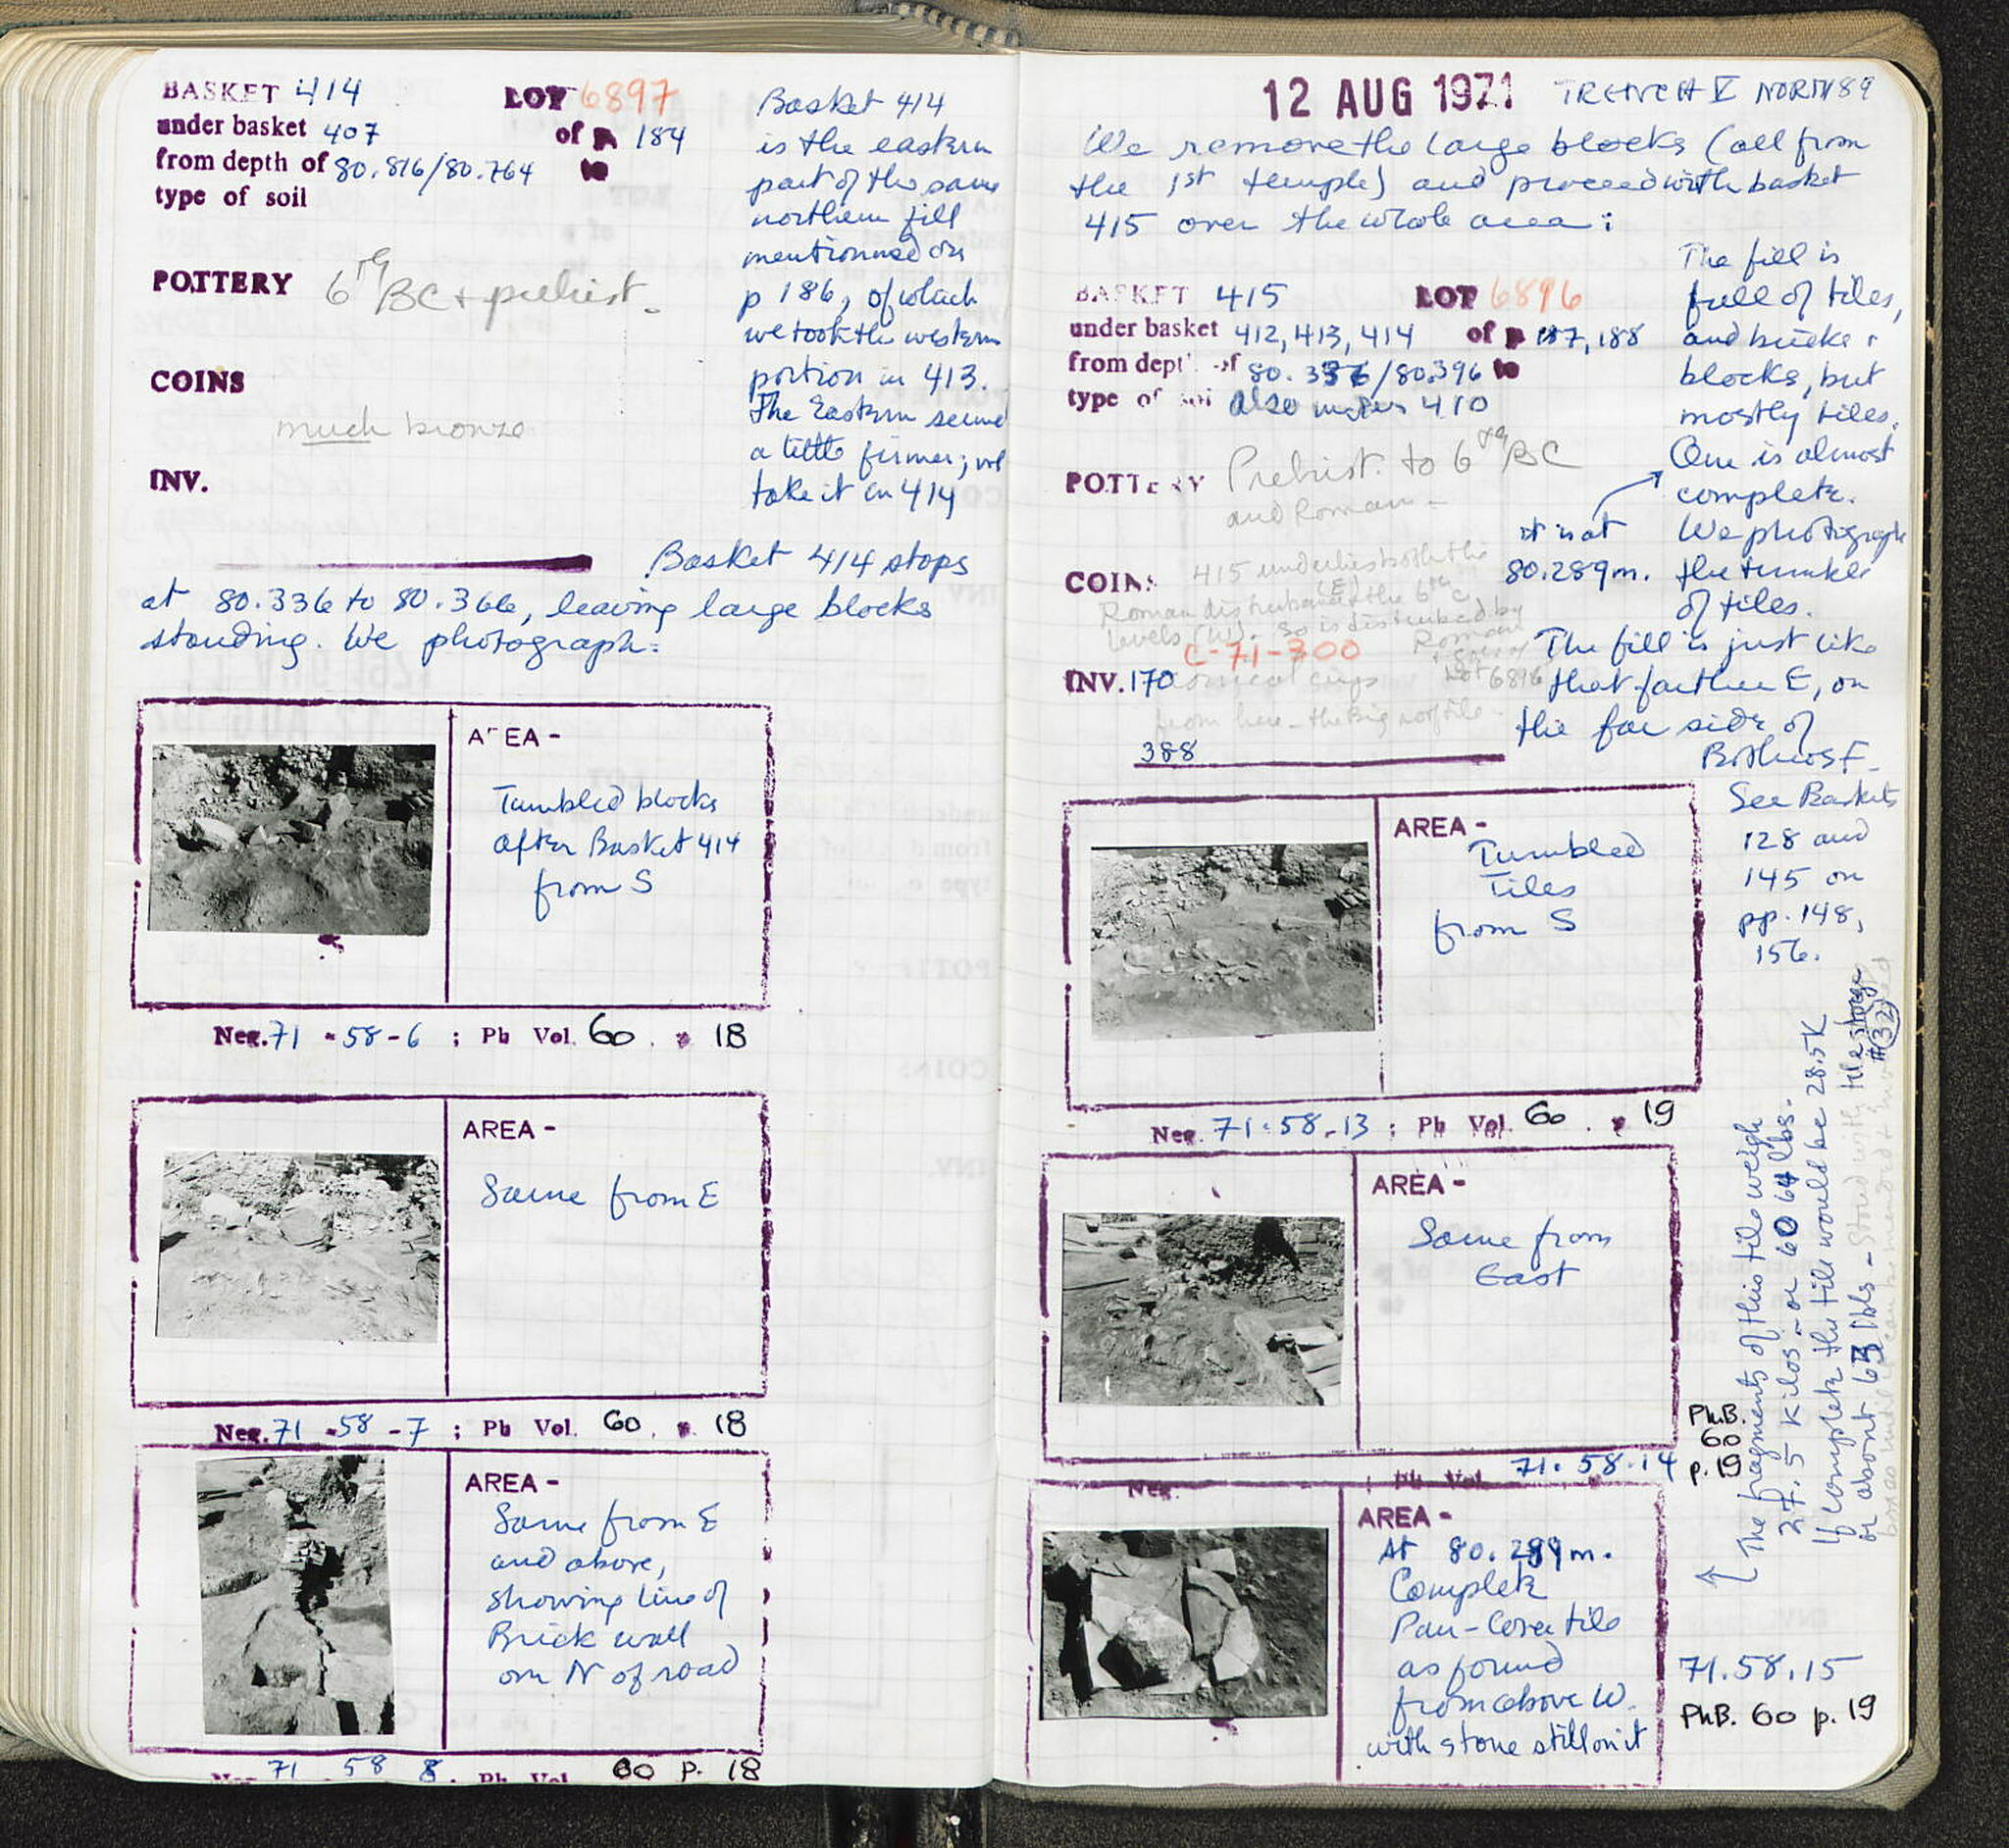 BASKET 414
LOT 6897
under basket 407
of p 184
from depth of 80.816/80.764
to
type of soil
POTTERY 6th BC + prehist.
COINS
much bronze
INV.
Basket 414
is the eastern
part of the same
northern fill
mentionned on
p 186, of which
we took the western
portion in 413.
The Eastern seemed
a little firmer; we
take it in 414
Basket 414 stops
at 80.336 to 80.366, leaving large blocks
standing. We photograph:
AREA -
Tumbled blocks
after Basket 414
from S
Neg. 71 - 58 - 6 ; Ph Vol. 60. p 18
AREA -
Same from E
Neg. 71 - 58 - 7 ; Ph Vol. 60. p 18
AREA -
Same from E
and above,
showing line of
Brick wall
on N of road
Neg. 71 58 8. Ph Vol 60 p. 18
12 AUG 1971 TRENCH V NORTH 89
We remove the large blocks (all from
the 1st temple) and proceed with basket
415 over the whole area:
BASKET 415
LOT 6896
under basket 412, 413, 414
of p 187, 188
from depth of 80.336/80.396 to
type of soi also under 410
POTTERY Prehist. to 6th BC
and Roman -
COINS 415 underlies both the
Roman disturbance (E) & the 6th c.
levels (W). So is disturbed by
Roman
C-71-300
Lot 6896
INV. 170 conical cups
from here - the Big roof tile -
388
The fill is
full of tiles,
and bricks +
blocks, but
mostly tiles.
One is almost
complete.
it is at
80.289m.
We photograph
the tumble
of tiles.
The fill is just like
that farther E, on
the far side of
Bothros F.
See Baskets
128 and
145 on
pp. 148,
156.
AREA -
Tumbled
Tiles
from S
Neg. 71-58-13 ; Ph Vol. 60. p 19
AREA -
Same from
East
Neg. Ph Vol. 71.58.14
Ph.B.
60
p. 19
AREA -
At 80.289m.
Complete
Pan-Cover tile
as found
from above W.
with stone still on it
71.58.15
Ph.B. 60 p. 19
The fragments of this tile weigh
27.5 Kilos - or 60 64 lbs.
If complete the tile would be 28.5K
or about 63 lbs - Stored with tile storage
#32